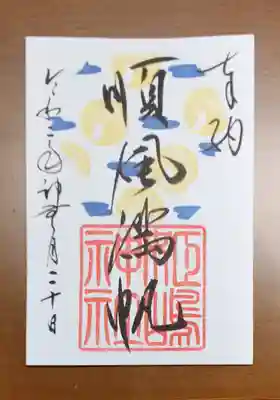 奉納
順風満帆
令和二年神無月二十日
神社